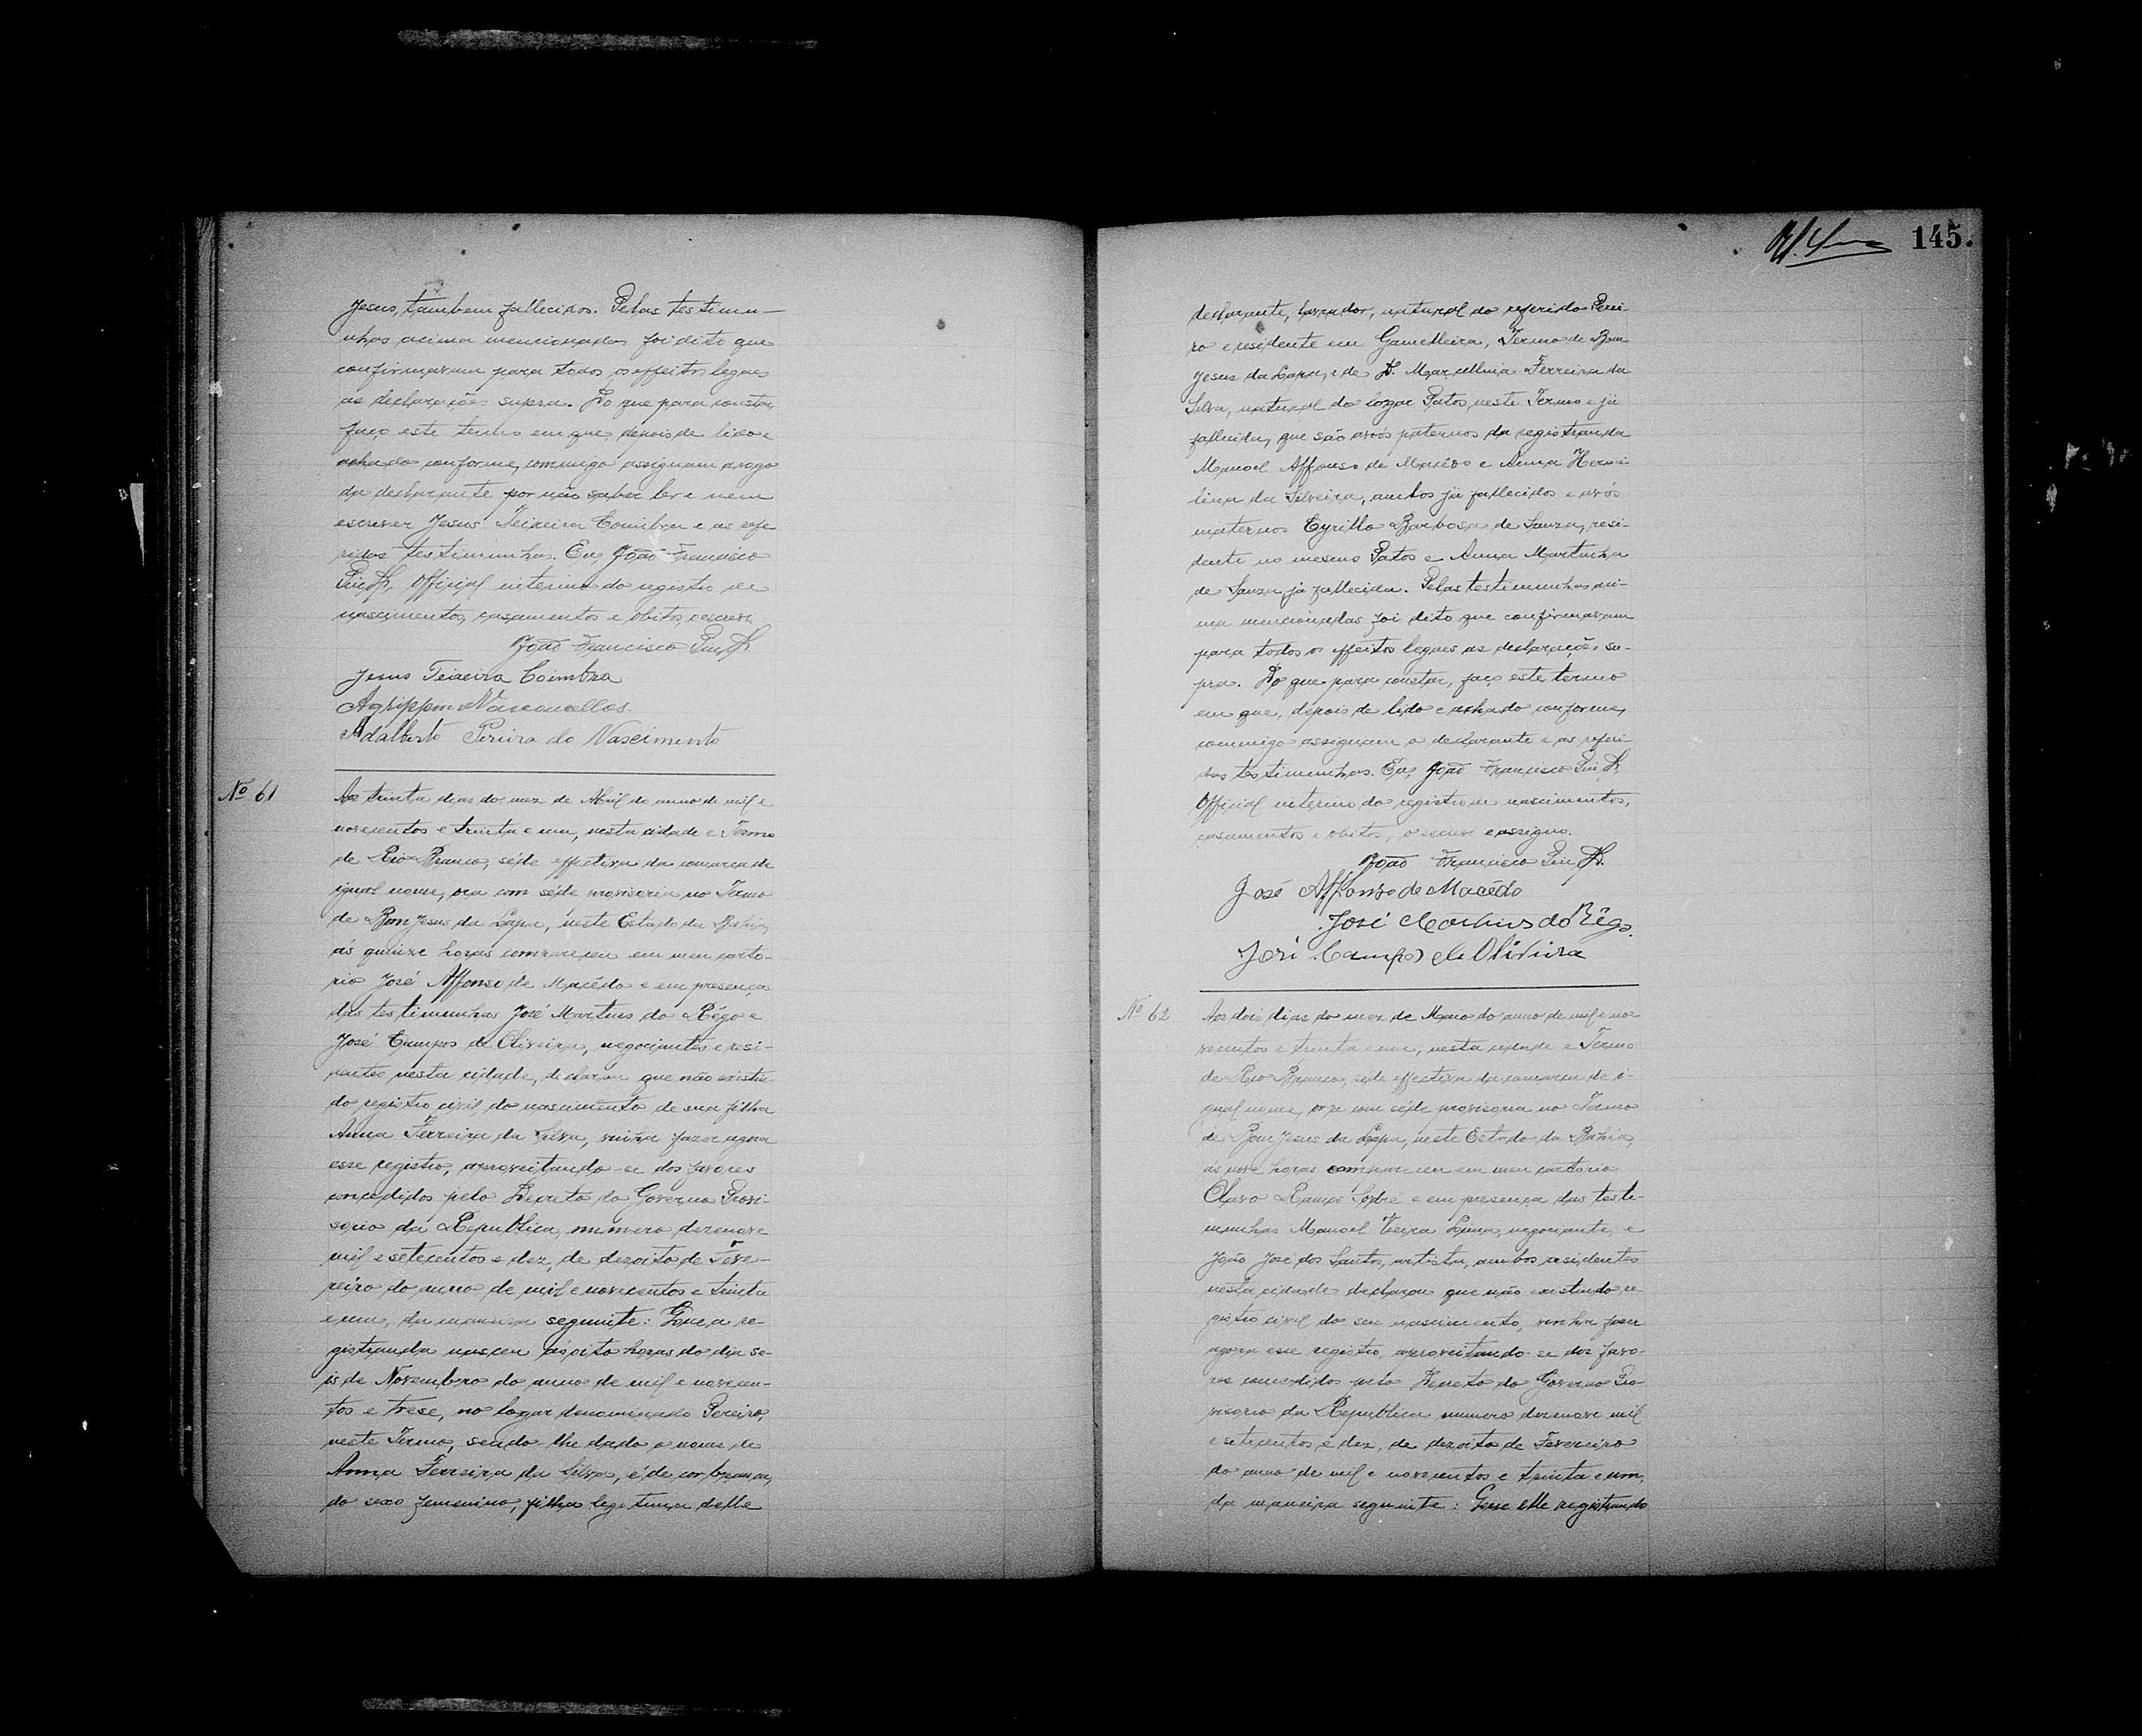 Jesus, tambem fallecidos. Pelas testimu-
nhas acima mencionadas foi dito que
confirmavam para todos os effeitos legaes
as declarações supra. Do que para constar,
faço este termo em que, depois de lido e
achado conforme, commigo assignam a rogo
da declarante por não saber ler e nem
escrever Jesus Teixeira Coimbra e as refe-
ridas testimunhas. Eu, João Francisco
Official interino do registro de
nascimentos, casamentos e obitos, o escrevi.
João Francisco
Jesus Teixeira Coimbra
Agrippino Vasconcellos
Adalberto Pereira do Nascimento
Nº 61
Aos trinta dias do mez de Abril do anno de mil e
novecentos e trinta e um, nesta cidade e Termo
de Rio Branco, séde effectiva da comarca de
igual nome, ora com séde provisoria no Termo
de Bom Jesus da Lapa, neste Estado da Bahia,
ás quinze horas compareceu em meu carto-
rio José Affonso de Macêdo e em presença
das testimunhas José Martins do Rêgo e
José Campos de Oliveira, negociantes e resi-
dentes nesta cidade, declarou que não existin-
do registro civil do nascimento de sua filha
Anna Ferreira da Silva, vinha fazer agora
esse registro, aproveitando-se dos favores
concedidos pelo Decreto do Governo Provi-
sorio da Republica, numero dezenove
mil e setecentos e dez, de dezoito de Feve-
reiro do anno de mil e novecentos e trinta
e um, da maneira seguinte: Que a re-
gistranda nasceu ás oito horas do dia se-
is de Novembro do anno de mil e novecen-
tos e trese, no logar denominado Pereiro,
neste Termo, sendo-lhe dado o nome de
Anna Ferreira da Silva, é de cor branca,
do sexo femenino, filha legitima delle
145.
declarante, lavrador, natural do referido Perei-
ro e residente em Gamelleira, Termo de Bom
Jesus da Lapa, e de D. Marcellina Ferreira da
Silva, natural do logar Patos, neste Termo e já
fallecida, que são avós paternos da registranda
Manoel Affonso de Macêdo e Anna Herme-
lina da Silveira, ambos já fallecidos e avós
maternos Cyrillo Barbosa de Souza, resi-
dente no mesmo Patos e Anna Martinha
de Souza já fallecida. Pelas testimunhas aci-
ma mencionadas foi dito que confirmavam
para todos os effeitos legaes as declarações su-
pra. Do que para constar, faço este termo
em que, depois de lido e achado conforme,
commigo assignam o declarante e as referi-
das testimunhas. Eu, João Francisco
Official interino do registro de nascimentos,
casamentos e obitos, o escrevi e assigno.
João Francisco
José Affonso de Macêdo
José Martins do Rêgo.
José Campos de Oliveira
Nº 62
Aos dois dias do mez de Maio do anno de mil e no-
vecentos e trinta e um, nesta cidade e Termo
de Rio Branco, séde effectiva da comarca de i-
gual nome, ora com séde provisoria no Termo
de Bom Jesus da Lapa, neste Estado da Bahia,
ás nove horas compareceu em meu cartorio
Olavo Ramos Sodré e em presença das teste-
munhas Manoel Vieira Lima, negociante, e
João José dos Santos, artista, ambos residentes
nesta cidade declarou que não existindo re-
gistro civil do seu nascimento, vinha fazer
agora esse registro, aproveitando-se dos favo-
res concedidos pelo Decreto do Governo Pro-
visorio da Republica numero dezenove mil
e setecentos e dez, de dezoito de Fevereiro
do anno de mil e novecentos e trinta e um,
da maneira seguinte: Que elle registrando